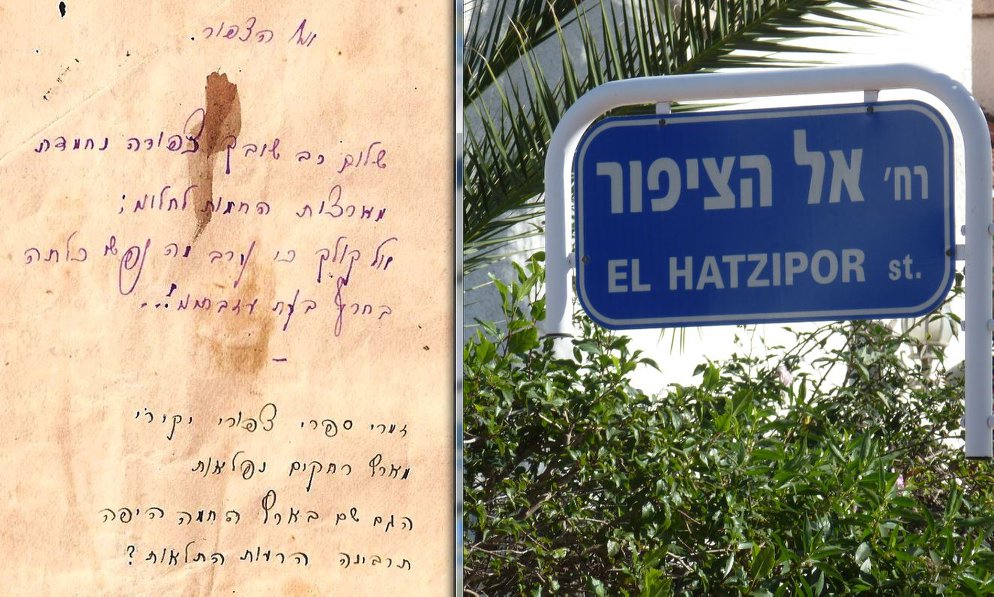 אל הצפור
שלום רב שובך צפורה נחמדת
מארצות החמות לחלוני;
אל קולך כי ערב מה נפשי כלתה
בחרף בעת
זמרי ספרי צפורי
מארץ רחקים נפלאות
הגם שם בארץ החמה היפה
תרבינה הרעות התלאות?
רח' אל הציפור
EL HATZIPOR st.